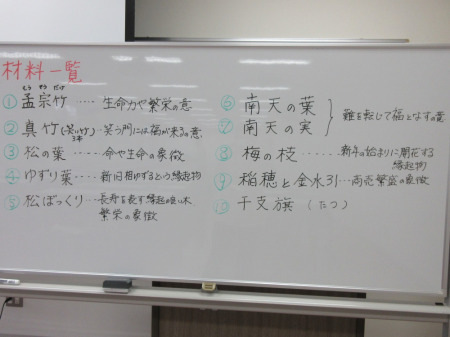 材料一覧
もうそうだけ
① 孟宗竹 ‥‥ 生命力や繁栄の意
② 真竹(笑い竹) ‥笑う門には福が来るの意
③ 松の葉 ‥‥ 命や生命の象徴
④ ゆずり葉 ‥‥ 新旧相ゆずるという縁起物
⑤ 松ぼっくり ‥ 長寿を表す縁起の良い木
繁栄の象徴
⑥ 南天の葉
⑦ 南天の実
難を転じて福となすの意
⑧ 梅の枝 ‥‥‥ 新年の始まりに開花する
縁起物
⑨ 稲穂と金水引 ‥商売繁盛の象徴
⑩ 干支旗 (たつ)